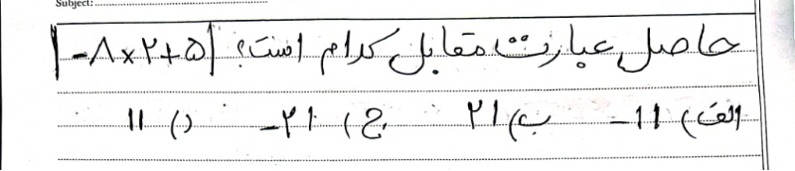 Subject:
حاصل عبارت مقابل کدام است؟ |-۸×۲+۵|
الف) -۱۱ ب) ۲۱ ج) -۲۱ د) ۱۱